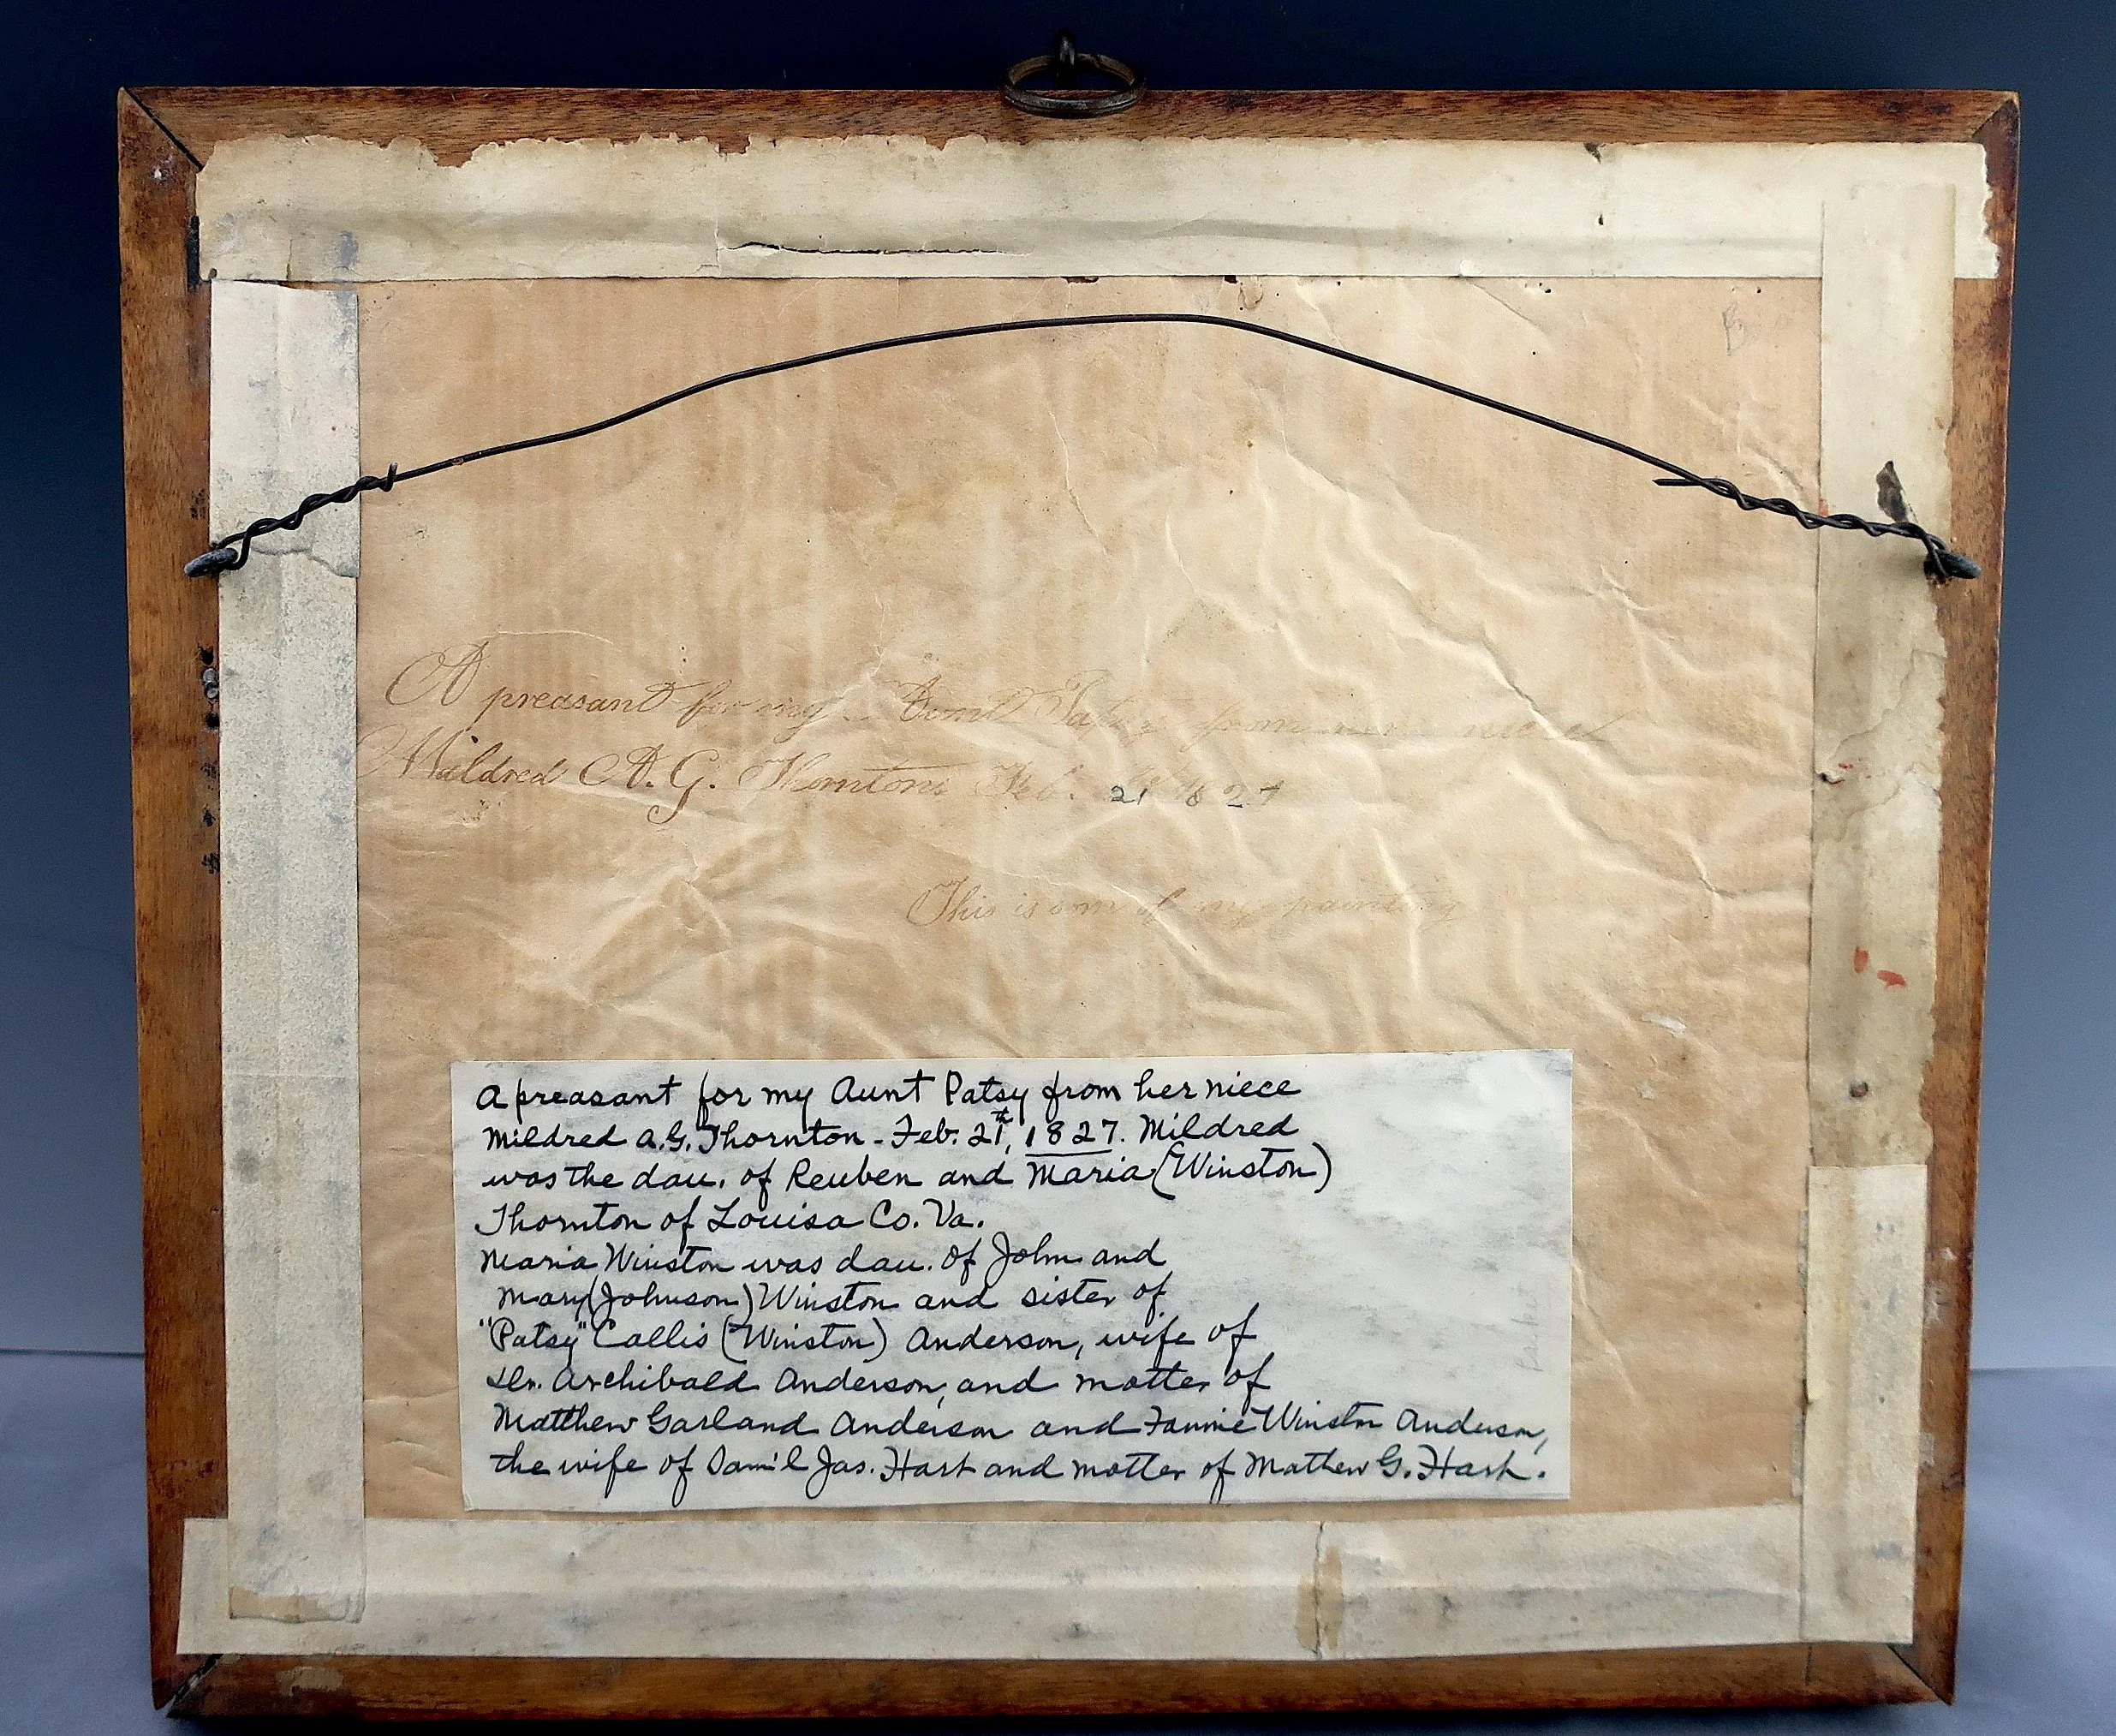 A preasant for my Aunt Patsy from her niece
Mildred A. G. Thornton Feb. 21 1827
This is one of my painting
A preasant for my Aunt Patsy from her niece
Mildred A. G. Thornton - Feb. 21st, 1827. Mildred
was the dau. of Reuben and Maria (Winston)
Thornton of Louisa Co. Va.
Maria Winston was dau. of John and
Mary (Johnson) Winston and sister of
"Patsy" Callis (Winston) Anderson, wife of
Dr. Archibald Anderson, and mother of
Matthew Garland Anderson and Fannie Winston Anderson,
the wife of Sam'l Jas. Hart and mother of Mathew G. Hart.